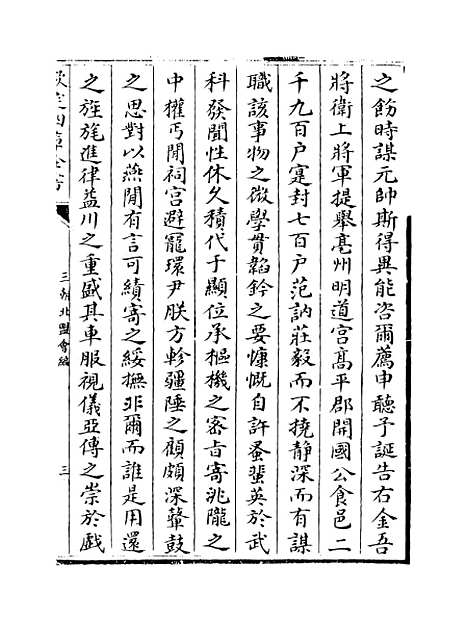 之飭時謀元帥斯得異能咨爾薦申聽予誕告右金吾
將衛上將軍提舉亳州明道宮高平郡開國公食邑二
千九百戶寔封七百戶范訥莊毅而不撓静深而有謀
職該事物之微學貫韜鈐之要慷慨自許蚤蜚英於武
科發聞性休久積代于顯位承樞機之密旨寄洮隴之
中權丐閒祠宮避寵環尹朕方軫疆陲之顧頗深鼙鼓
之思對以燕閒有言可績寄之綏撫非爾而誰是用還
之旌旄進律益川之重盛其車服視儀亞傅之崇於戲
欽定四庫全書
三朝北盟會編
三